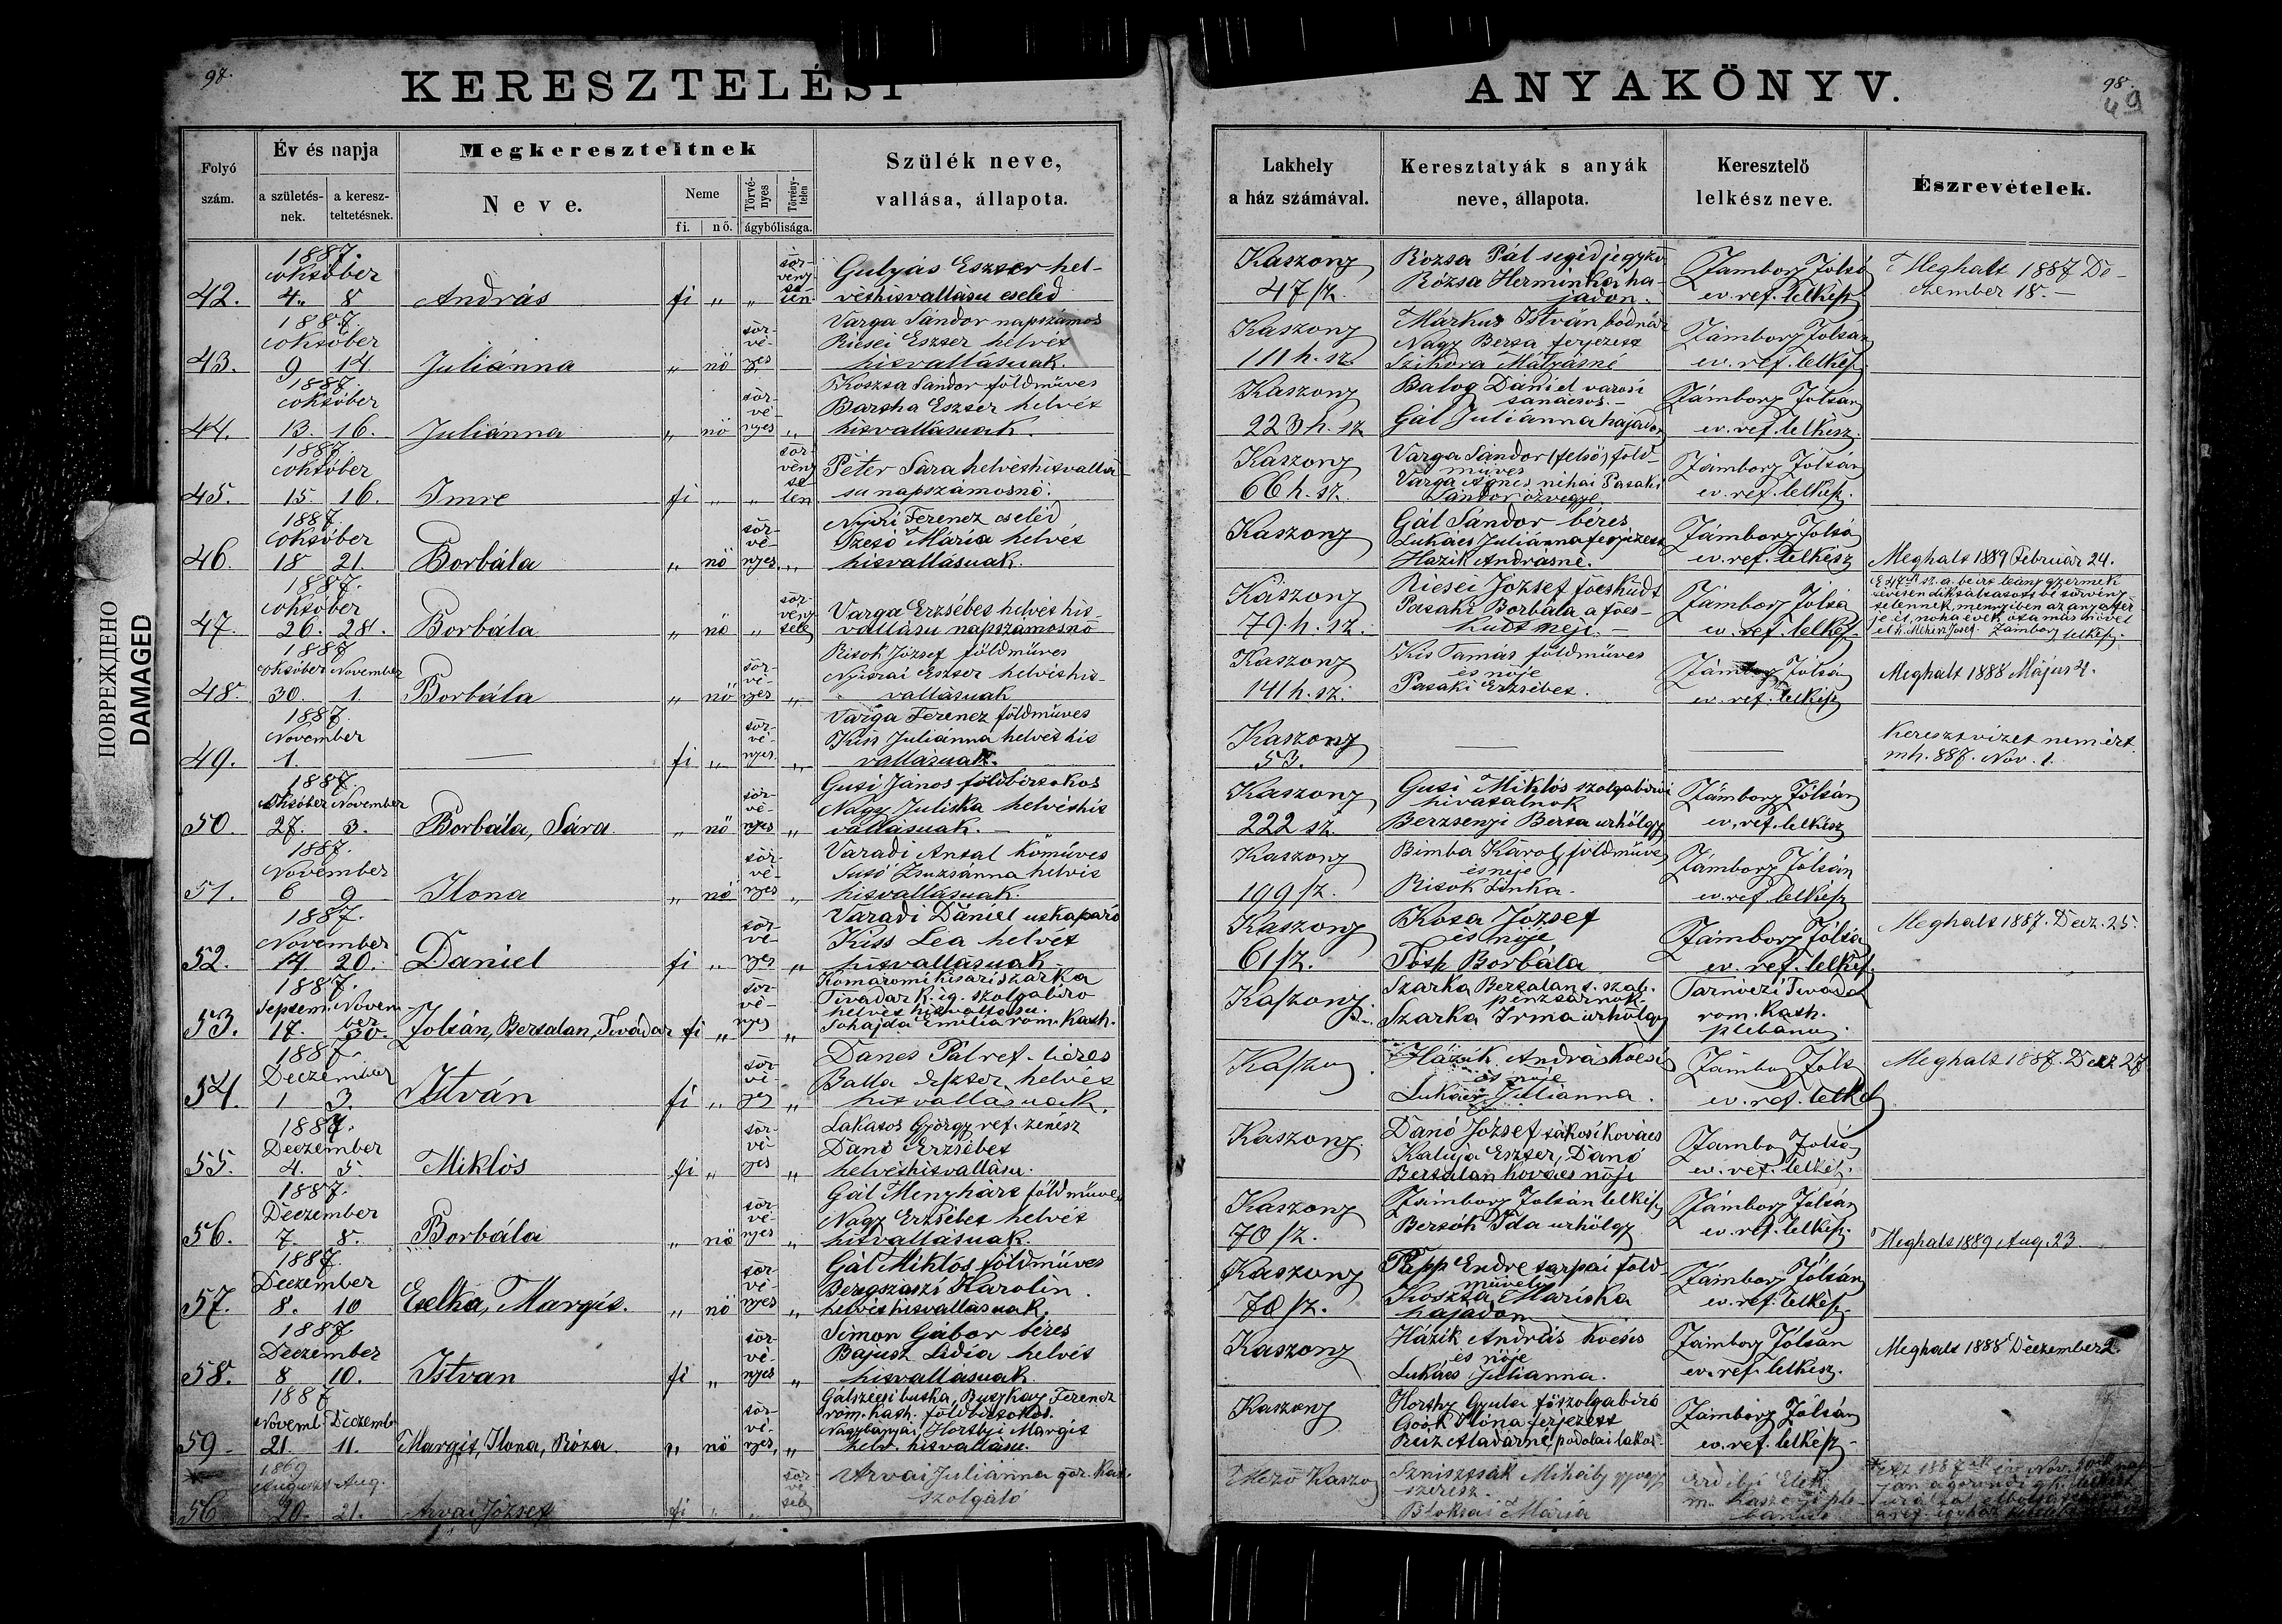 97.
KERESZTELÉSI
ANYAKÖNYV.
98.
49
ПОВРЕЖДЕНО
DAMAGED
Folyó szám.
Év és napja
a születés-nek.
a keresz-teltetésnek.
Megkereszteltnek
Neve.
Neme
fi.
nő.
Törvé-nyes
Törvény-telen
ágybólisága.
Szülék neve,
vallása, állapota.
Lakhely
a ház számával.
Keresztatyák s anyák
neve, állapota.
Keresztelő
lelkész neve.
Észrevételek.
42.
1887.
október
4. 8
András
fi „ „
tör-
vény
te-
len
Gulyás Eszter hel-
véthitvallásu cseléd
Kaszony
47 sz.
Rózsa Pál segédjegyző
Rózsa Herminka ha-
jadon.
Zámbory Zoltá
ev. ref. lelkész
Meghalt 1887 De-
czember 18.
43.
1887.
október
9 14
Juliánna
„ nő
tör-
vé-
nyes
Varga Sándor napszámos
Eszter helvét
hitvallásuak.
Kaszony
111 h. sz.
Márkus István bodnár
Nagy Berta férjezett
Szikora Mátyásné
Zámbory Zoltán
ev. ref. lelkész
44.
1887.
október
13. 16.
Juliánna
„ nő
tör-
vé-
nyes „
Koszta Sándor földmüves
Bartha Eszter helvét
hitvallásuak.
Kaszony
223 h. sz.
Balog Dániel városi
tanácsos.
Gál Juliánna hajadon
Zámbory Zoltán
ev. ref. lelkész.
45.
1887
október
15 16.
Imre
fi „ „
tör-
vény
te-
len
Péter Sára helvéthitvallá-
su napszámosnő.
Kaszony
66 h. sz.
Varga Sándor (felső) föld-
müves
Varga Ágnes néhai Pataki
Sándor özvegye
Zámbory Zoltán
ev. ref. lelkész.
46.
1887
október
18 21.
Borbála
„ nő
tör-
vé-
nyes „
Nyiri Ferencz cseléd
Mária helvét
hitvallásuak.
Kaszony
Gál Sándor béres
Lukács Juliánna férjezett
Hazik Andrásné.
Zámbory Zoltá
ev. ref. lelkész
Meghalt 1889 Február 24.
47.
1887.
október
26. 28.
Borbála
„ nő „
tör-
vény
tele
Varga Erzsébet helvét hit-
vallásu napszámosnő
Kaszony
79. h. sz.
József
Pataki Borbála a
neje.
Zámbory Zoltá
ev. ref. lelkész.
E 47ik sz. a. beirt leány gyermek
tévesen diktáltatott be törvény-
telennek, mennyiben az anya fér-
je él, noha évek óta más nővel
él h. József. Zámbory lelkész.
48.
1887
október November
30. 1.
Borbála
„ nő
tör-
vé-
nyes „
Ritok József földmüves
Nyiszai Eszter helvéthit-
vallásuak
Kaszony
141 h. sz.
Kis Tamás földmüves
és nője
Pataki Erzsébet.
Zámbory Zoltán
ev. ref. lelkész
Meghalt 1888 Május 4.
49.
1887.
November
1.
—
fi „
tör-
vé-
nyes „
Varga Ferencz földmüves
Kiss Juliánna helvét hit
vallásuak.
Kaszony
53.
—
—
Keresztvizet nem ért.
mh. 887. Nov. 1.
50.
1887
október November
27. 3.
Borbála, Sára
„ nő
tör-
vé-
nyes „
Guti János földbirtokos
Nagy Juliska helvéthit
vallásuak.
Kaszony
222 sz.
Guti Miklós szolgabirói
hivatalnok
Berzsenyi Berta urhölgy
Zámbory Zoltán
ev. ref. lelkész
51.
1887.
November
6 9
Ilona
„ nő
tör-
vé-
nyes „
Váradi Antal kőmüves
Sütő Zsuzsánna helvét
hitvallásuak.
Kaszony
199 sz.
Bimba Károly földmüves
és neje
Ritok Linka.
Zámbory Zoltán
ev. ref. lelkész
52.
1887.
November
17 20.
Dániel
fi „
tör-
vé-
nyes „
Váradi Dániel utkaparó
Kiss Lea helvét
hitvallásuak
Kaszony
61 sz.
Kósa József
és nője
Tóth Borbála
Zámbory Zoltá
ev. ref. lelkész.
Meghalt 1887. Decz. 25.
53.
1887.
Septem. Novem
ber
17. 30.
Zoltán, Bertalan, Tivadar
fi „
tör-
vé-
nyes „
Komáromi kisari Szarka
Tivadar k. ig. szolgabiró
helvét hitvallásu.
Tohajda Emilia róm. kath.
Kaszony.
Szarka Bertalan
pénztárnok.
Szarka Irma urhölgy
Tarnóczi Tivadar
rom. kath.
plebánus.
54.
1887.
Deczember
1 3.
István
fi „
tör-
vé-
nyes „
Danes Pál ref. béres
Balla Eszter helvét
hitvallásuak.
Kaszony
Házik András kocsis
és nője
Lukács Julianna.
Zámbory Zolt
ev. ref. lelkész
Meghalt 1887. Decz 27
55.
1887.
Deczember
4. 5
Miklós
fi „
tör-
vé-
nyes „
Lakatos György ref. zenész
Danó Erzsébet
helvéthitvallásu.
Kaszony
Danó József tákosi kovács
Kaluja Eszter, Danó
Bertalan kovács nője
Zámbory Zoltán
ev. ref. lelkész.
56.
1887.
Deczember
7. 8.
Borbála
„ nő
tör-
vé-
nyes „
Gál Menyhárt földmüves
Nagy Erzsébet helvét
hitvallásuak.
Kaszony
70 sz.
Zámbory Zoltán lelkész
Bertók Ida urhölgy
Zámbory Zoltán
ev. ref. lelkész.
Meghalt 1889 Aug. 23.
57.
1887.
Deczember
8. 10
Etelka, Margit.
„ nő
tör-
vé-
nyes „
Gál Miklós földmüves
Beregszászi Karolin
helvéthitvallásuak.
Kaszony
70 sz.
Papp Endre tarpai föld-
müvelő
Koszta Máriska
hajadon
Zámbory Zoltán
ev. ref. lelkész.
58.
1887
Deczember
8 10.
Istvan
fi „
tör-
vé-
nyes „
Simon Gábor béres
Bajusz Lidia helvét
hitvallásuak
Kaszony
Házik András kocsis
és nője
Lukács Julianna.
Zámbory Zoltán
ev. ref. lelkész.
Meghalt 1888 Deczember 2.
59.
1887
Novemb. Deczemb
21. 11.
Margit, Ilona, Róza.
„ nő
tör-
vé-
nyes „
Gálszécsi butka, Buzkay Ferencz
róm. kath. földbirtokos.
Nagybányai, Horthyi Margit
helv. hitvallásu.
Kaszony
Horthy Gyula főszolgabiró
Ilona férjezett
Aladárné, podolai lakos.
Zámbory Zoltán
ev. ref. lelkész.
56
1869
Auguszt Aug.
20. 21.
Arvai József
fi
Arvai Juliánna gör. kat.
szolgáló
Mező Kaszo
Mihály gyógy
szerész.
Mária
Erdélyi Elek
m. kaszonyi ple-
bánus
Az 1887ik év Nov.